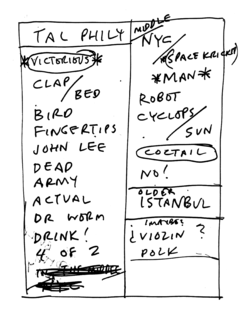 TAL PHILY
*VICTORIOUS*
CLAP/
BED
BIRD
FINGERTIPS
JOHN LEE
DEAD
ARMY
ACTUAL
DR WORM
DRINK!
4 OF 2
IN THE MIDDLE
MIDDLE
NYC/
(SPACE KRICKIT)
*MAN*
ROBOT
CYCLOPS/
SUN
COCTAIL
NO!
OLDER
ISTANBUL
(MAYBE)
¿VIOLIN?
POLK